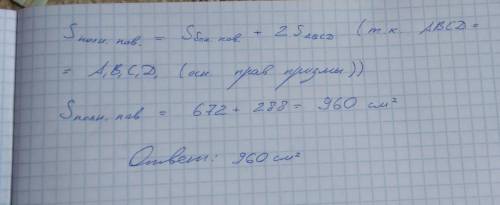 Sполн. пов. = Sбок. пов. + 2 SABCD (т.к. ABCD =
= A₁B₁C₁D₁ (осн. прав призмы))
Sполн. пов = 672 + 288 = 960 см²
Ответ: 960 см²